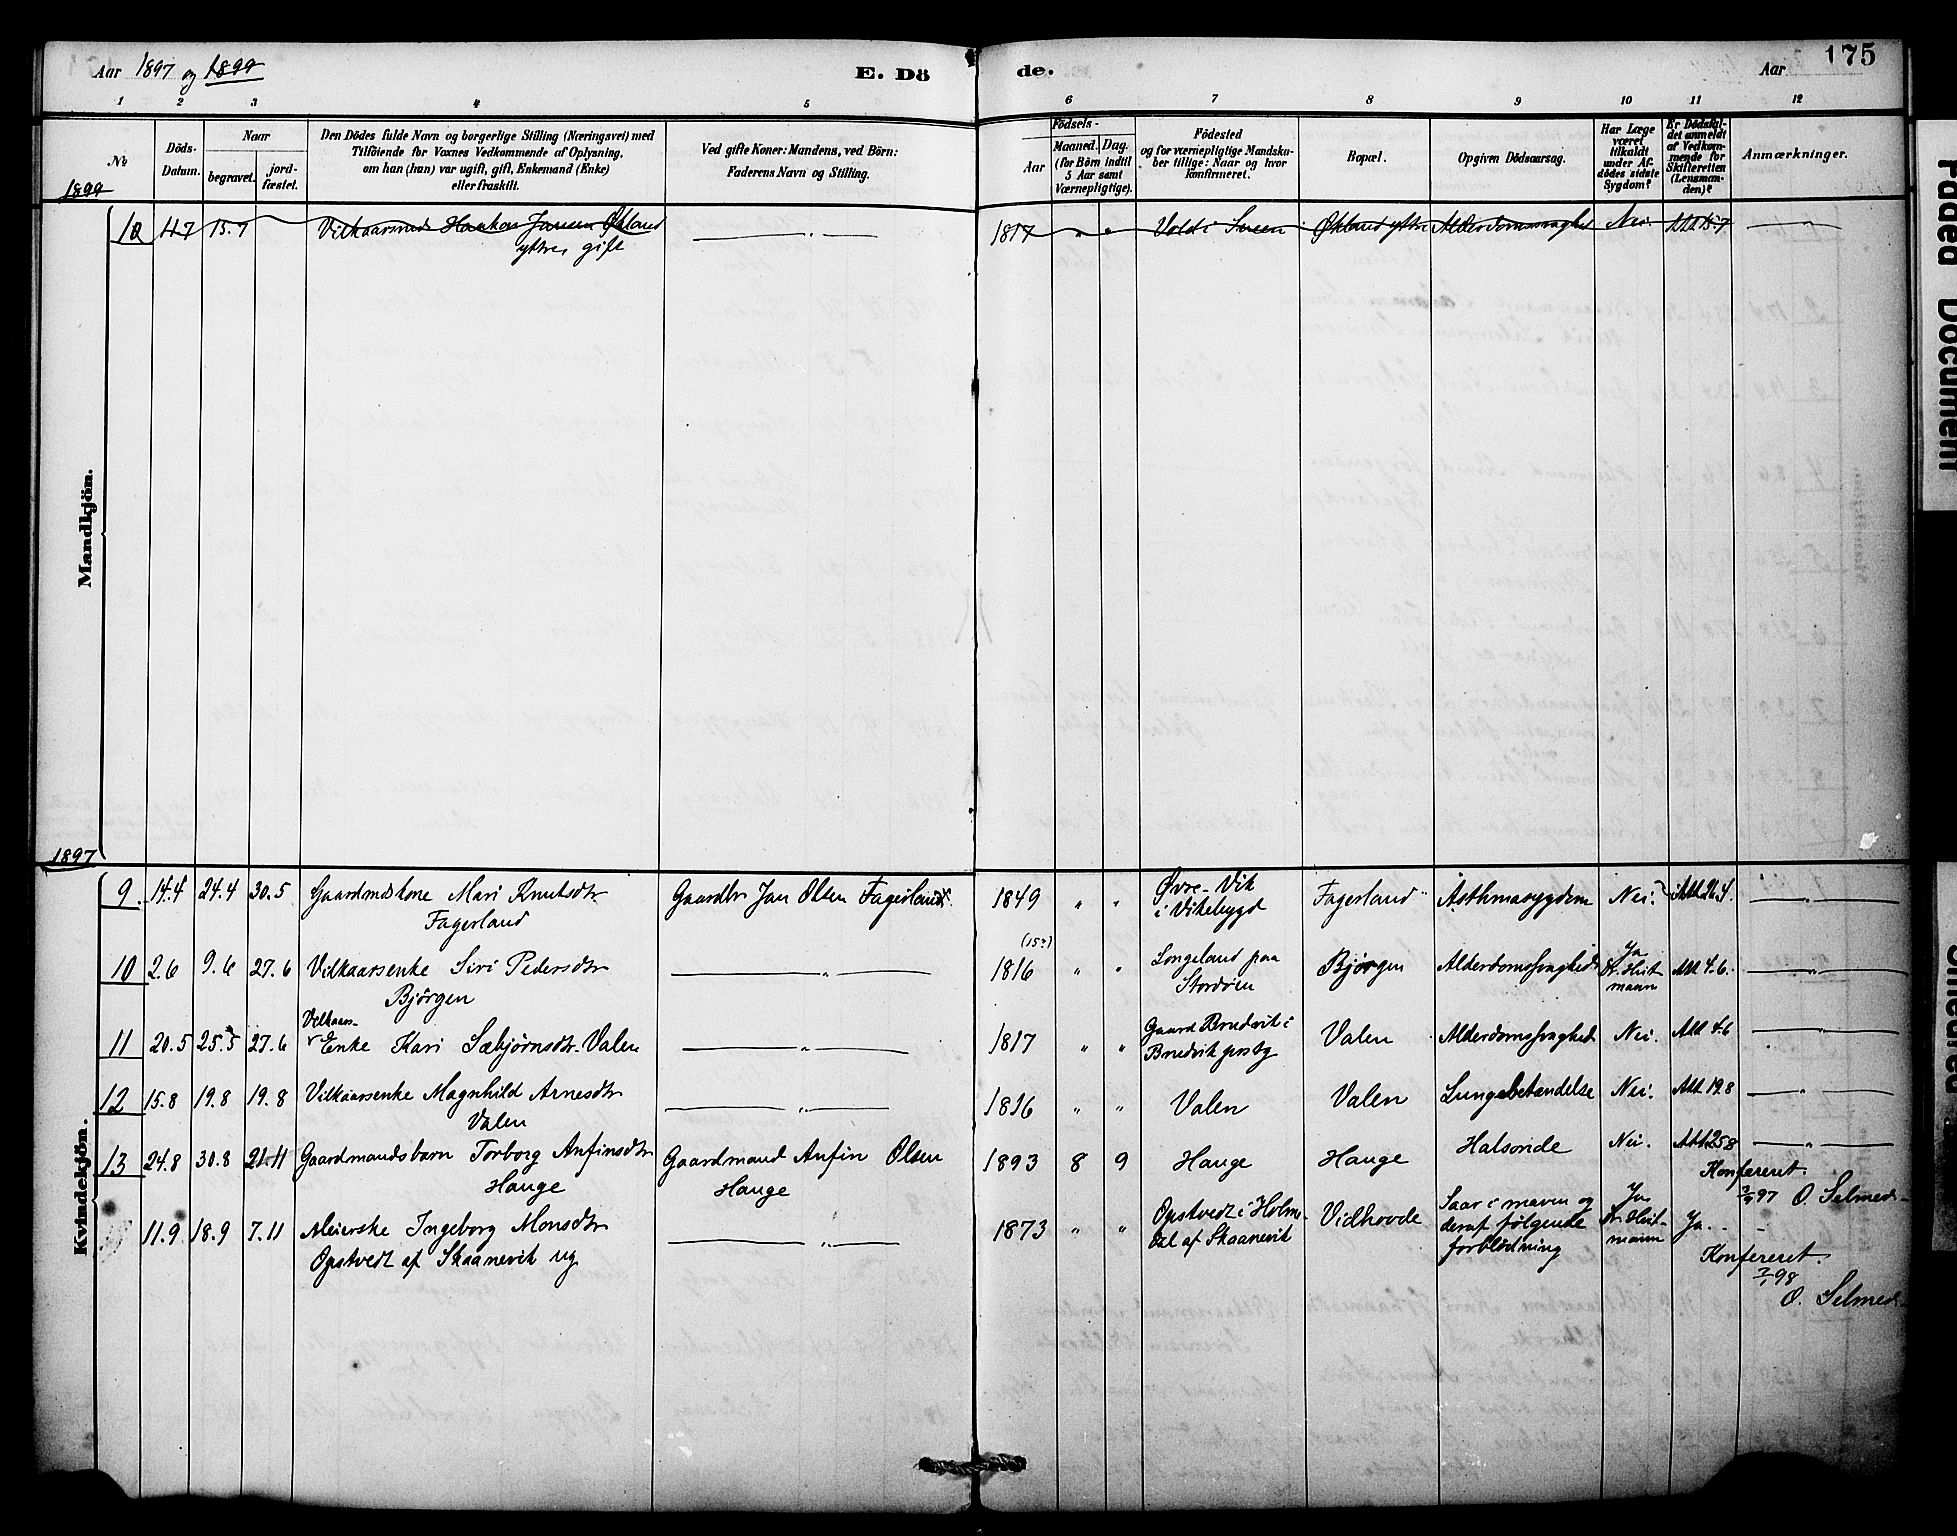 Aar 1897 og 1899 E. Dö de. Aar 175
1 2 3 4 5 6 7 8 9 10 11 12
No
Döds-Datum.
Naar
begravet.
jordfæstet.
Den Dödes fulde Navn og borgerlige Stilling (Næringsvei) med
Tilföiende for Voxnes Vedkommende af Oplysning,
om han (hun) var ugift, gift, Enkemand (Enke)
eller fraskilt.
Ved gifte Koner: Mandens, ved Börn:
Faderens Navn og Stilling.
Födsels-
Aar
Maaned. Dag.
(for Börn indtil
5 Aar samt
Værnepligtige).
Födested
og for værnepligtige Mandskaber tillige: Naar og hvor
konfirmeret.
Bopæl.
Opgiven Dödsaarsag.
Har Læge
været
tilkaldt
under Afdödes sidste
Sygdom?
Er Dödsfaldet anmeldt
af Vedkommende for
Skifteretten
(Lensmanden)?
Anmærkninger.
1899
Mandkjön.
10 11.7 15.7 Vilkaarsmand Haakon Jansen Økland 1817 " " Vold i Sveen Økland ytre Alderdomssvaghed Nei. Att 15.7 "
ytre, gift
1897
Kvindekjön.
9. 14.4 24.4 30.5 Gaardmdskone Mari Knutsdtr. Gaardbr Jan Olsen Fagerland. 1849 " " Øvre-Vik Fagerland Asthmasygdom Nei. Att 26.4. "
Fagerland i Vikebygd
(15?)
10 2.6 9.6 27.6 Vilkaarsenke Siri Pedersdtr " 1816 " " Longeland paa Bjørgen Alderdomssvaghed Ja Att 4.6. "
Bjørgen Stordøen Dr. Heitmann
11 20.5 25.5 27.6 Vilkaars-
Enke Kari Sæbjørnsdtr. Valen " 1817 " " Gaard Bredvik i Valen Alderdomssvaghed Nei. Att 4.6 "
Bredvik prstg
12 15.8 19.8 19.8 Vilkaarsenke Magnhild Arnesdtr " 1816 " " Valen Valen Lungebetændelse Nei. Att 19.8 "
Valen
13 24.8 30.8 21.11 Gaardmandsbarn Torborg Anfinsdtr Gaardmand Anfin Olsen 1893 8 9 Hauge Hauge Halsonde Nei. Att 25.8 "
Hauge Hauge
Konfereret.
97 O. Selmed
11.9 18.9 7.11 Meierske Ingeborg Monsdtr " 1873 " " Opstvedt i Holmdal af Skaanevik Vidhovde Saar i maven og Ja Ja.
Opstvedt af Skaanevik ug deraf følgende Dr. Heitmann
forblödning
Konfereret.
98
O. Selmed